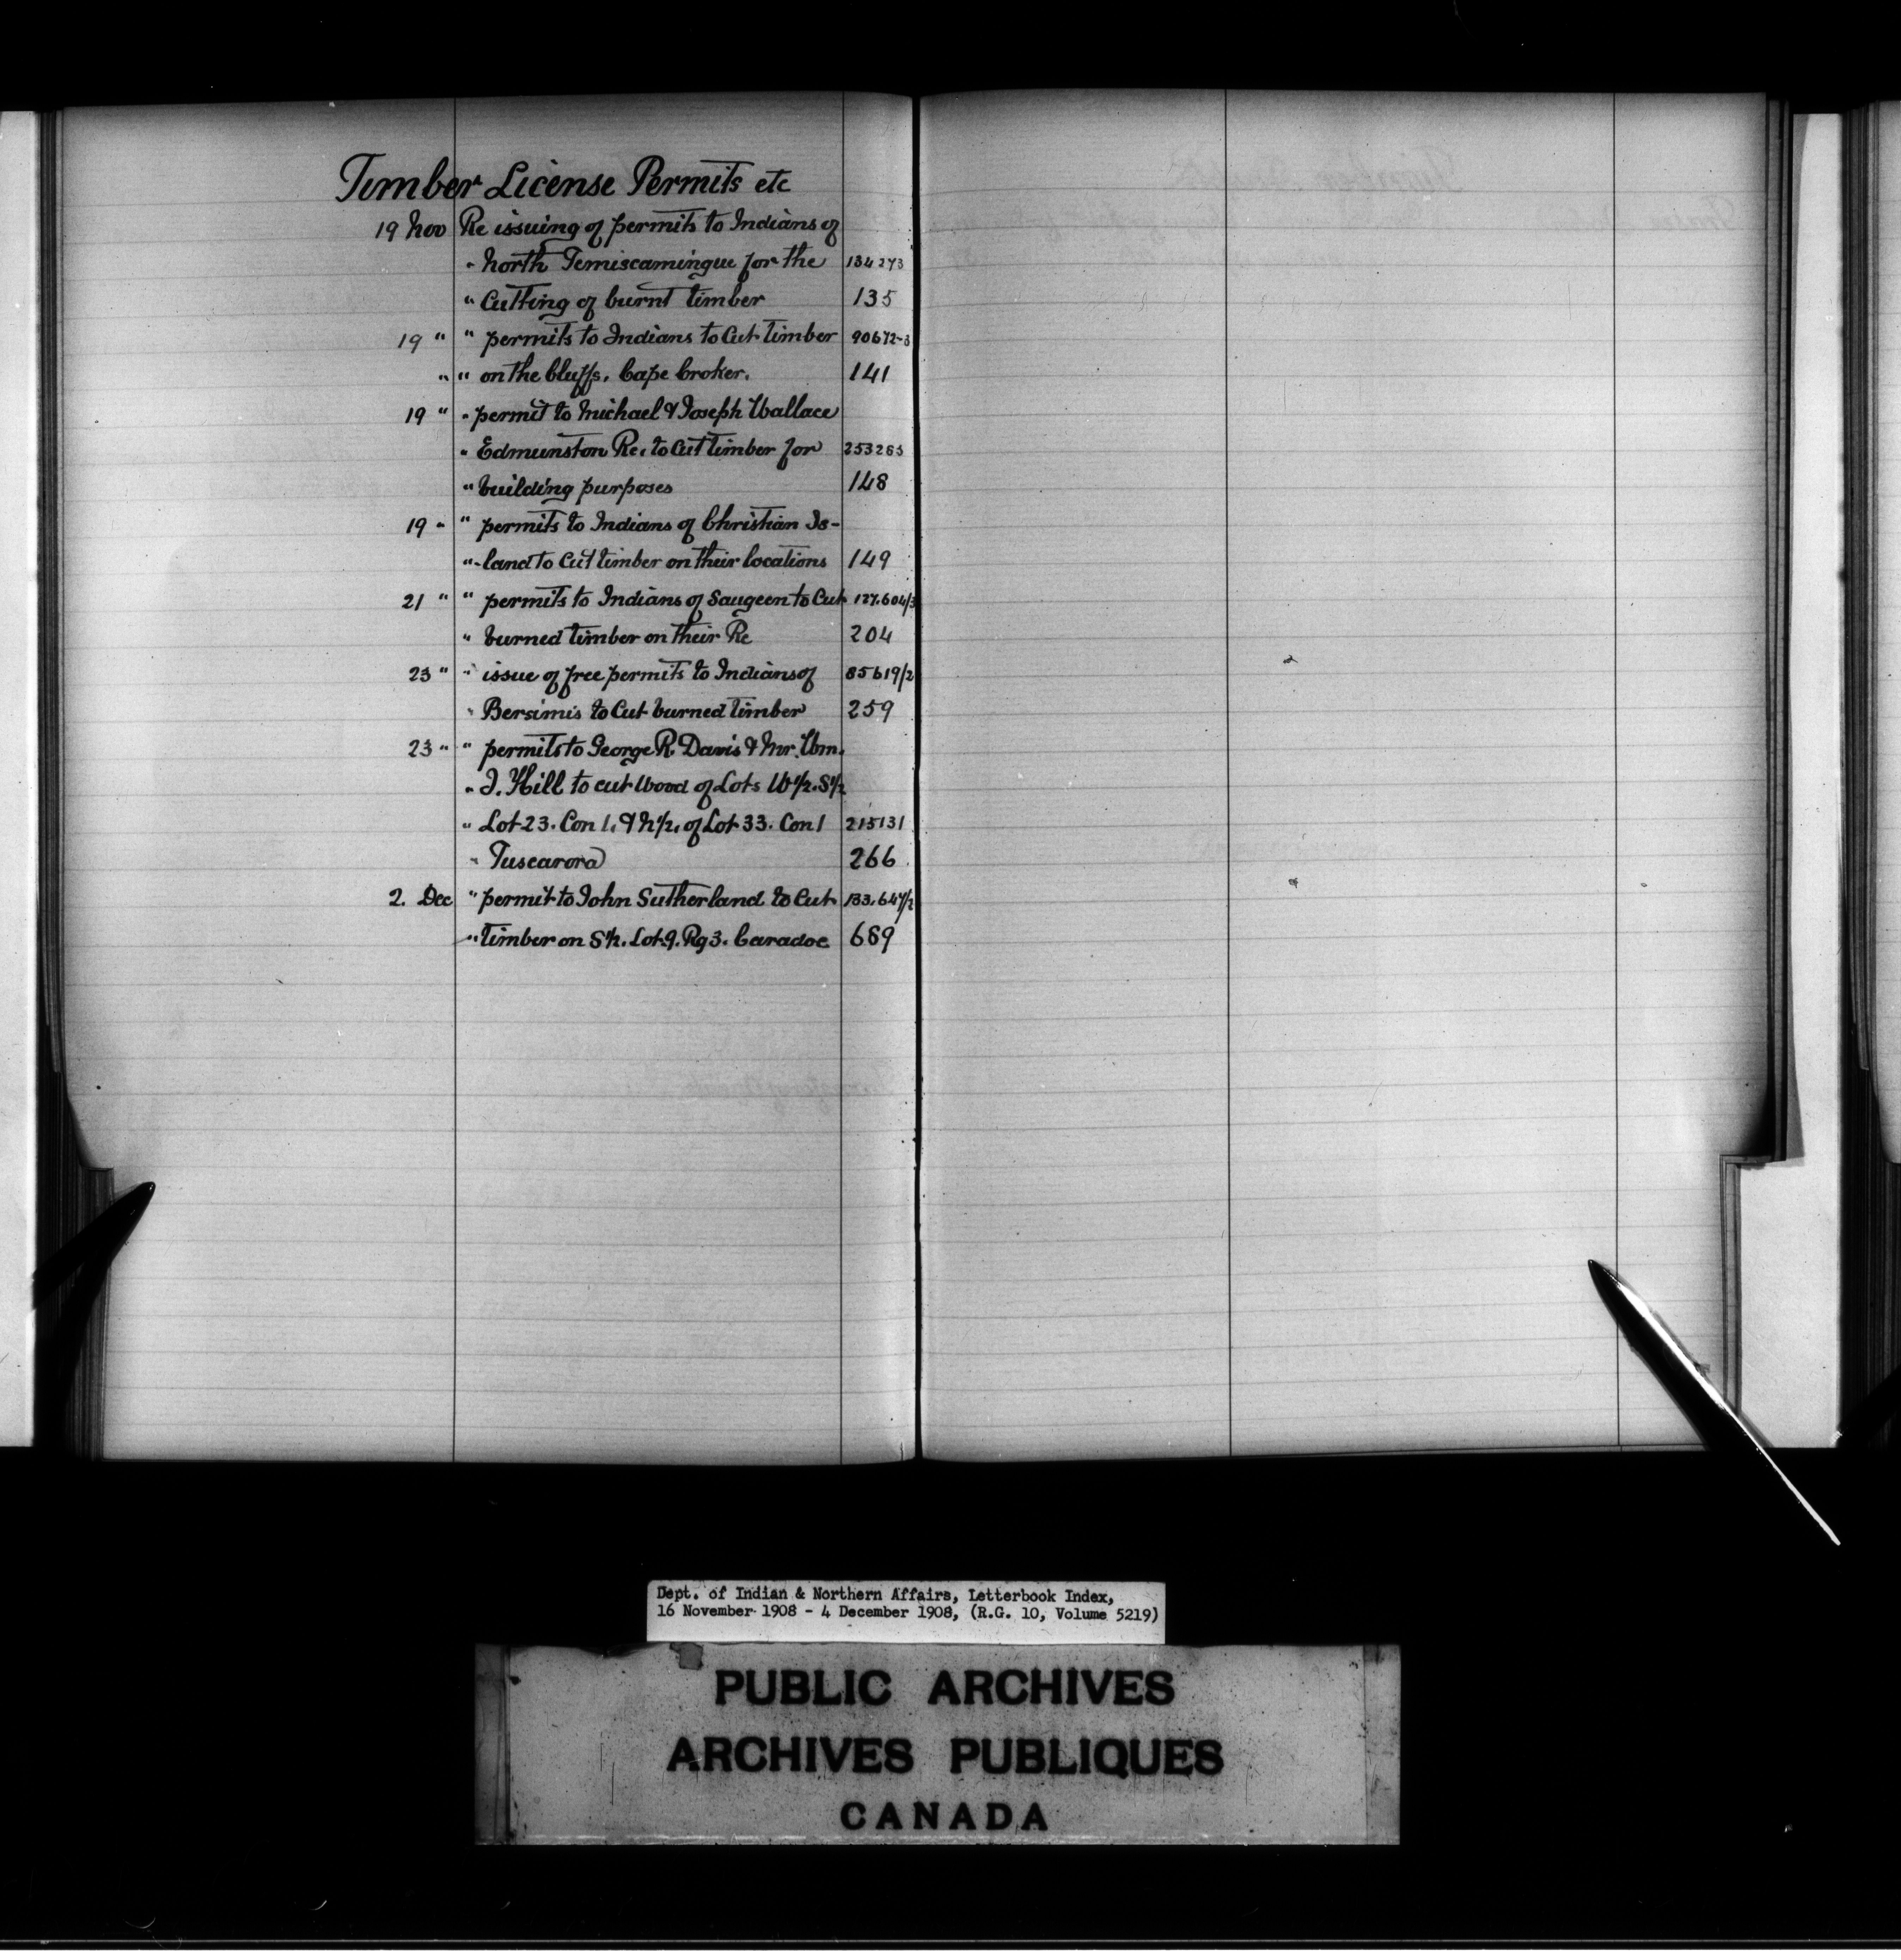 Timber License Permits etc
19 Nov Re issuing of permits to Indians of
" North Temiscamingue for the 134273
" Cutting of burnt timber 135
19 " " permits to Indians to Cut timber 90672-3
" " on the bluffs, Cape Croker. 141
19 " " permit to Michael & Joseph Wallace
" Edmunston Re. to Cut timber for 253265
" building purposes 148
19 " " permits to Indians of Christian Is-
" -land to Cut timber on their locations 149
21 " " permits to Indians of Saugeen to Cut 127.604/3
" burned timber on their Re 204
23 " " issue of free permits to Indians of 85619/2
" Bersimis to Cut burned timber 259
23 " " permits to George R. Davis & Mr. Wm.
" J. Hill to cut Wood of Lots W 1/2. S 1/2
" Lot 23. Con 1. & N 1/2. of Lot 33. Con 1 215131
" Tuscarora 266
2. Dec " permit to John Sutherland to Cut 133.647/2
" timber on S 1/2. Lot 9. Rg 3. Caradoc 689
Dept. of Indian & Northern Affairs, Letterbook Index,
16 November 1908 - 4 December 1908, (R.G. 10, Volume 5219)
PUBLIC ARCHIVES
ARCHIVES PUBLIQUES
CANADA